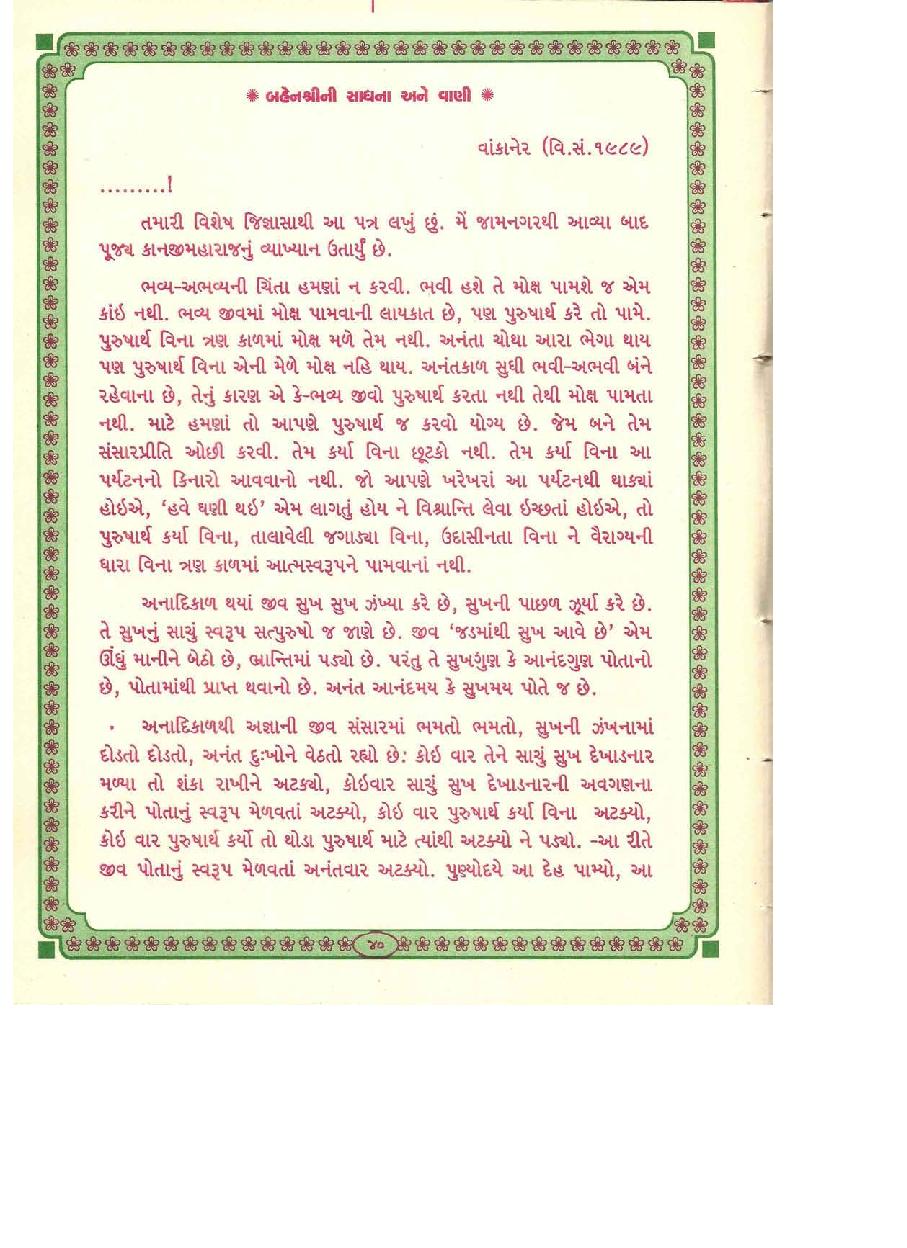 ❋ બહેનશ્રીની સાધના અને વાણી ❋
વાંકાનેર (વિ.સં.૧૯૮૯)
.........!
તમારી વિશેષ જિજ્ઞાસાથી આ પત્ર લખું છું. મેં જામનગરથી આવ્યા બાદ
પૂજ્ય કાનજીમહારાજનું વ્યાખ્યાન ઉતાર્યું છે.
ભવ્ય-અભવ્યની ચિંતા હમણાં ન કરવી. ભવી હશે તે મોક્ષ પામશે જ એમ
કાંઇ નથી. ભવ્ય જીવમાં મોક્ષ પામવાની લાયકાત છે, પણ પુરુષાર્થ કરે તો પામે.
પુરુષાર્થ વિના ત્રણ કાળમાં મોક્ષ મળે તેમ નથી. અનંતા ચોથા આરા ભેગા થાય
પણ પુરુષાર્થ વિના એની મેળે મોક્ષ નહિ થાય. અનંતકાળ સુધી ભવી-અભવી બંને
રહેવાના છે, તેનું કારણ એ કે-ભવ્ય જીવો પુરુષાર્થ કરતા નથી તેથી મોક્ષ પામતા
નથી. માટે હમણાં તો આપણે પુરુષાર્થ જ કરવો યોગ્ય છે. જેમ બને તેમ
સંસારપ્રીતિ ઓછી કરવી. તેમ કર્યા વિના છૂટકો નથી. તેમ કર્યા વિના આ
પર્યટનનો કિનારો આવવાનો નથી. જો આપણે ખરેખરાં આ પર્યટનથી થાક્યાં
હોઇએ, ‘હવે ઘણી થઇ’ એમ લાગતું હોય ને વિશ્રાન્તિ લેવા ઇચ્છતાં હોઇએ, તો
પુરુષાર્થ કર્યા વિના, તાલાવેલી જગાડ્યા વિના, ઉદાસીનતા વિના ને વૈરાગ્યની
ધારા વિના ત્રણ કાળમાં આત્મસ્વરૂપને પામવાનાં નથી.
અનાદિકાળ થયાં જીવ સુખ સુખ ઝંખ્યા કરે છે, સુખની પાછળ ઝૂર્યા કરે છે.
તે સુખનું સાચું સ્વરૂપ સત્પુરુષો જ જાણે છે. જીવ ‘જડમાંથી સુખ આવે છે’ એમ
ઊંધું માનીને બેઠો છે, ભ્રાન્તિમાં પડ્યો છે. પરંતુ તે સુખગુણ કે આનંદગુણ પોતાનો
છે, પોતામાંથી પ્રાપ્ત થવાનો છે. અનંત આનંદમય કે સુખમય પોતે જ છે.
અનાદિકાળથી અજ્ઞાની જીવ સંસારમાં ભમતો ભમતો, સુખની ઝંખનામાં
દોડતો દોડતો, અનંત દુઃખોને વેઠતો રહ્યો છે. કોઇ વાર તેને સાચું સુખ દેખાડનાર
મળ્યા તો શંકા રાખીને અટક્યો, કોઇવાર સાચું સુખ દેખાડનારની અવગણના
કરીને પોતાનું સ્વરૂપ મેળવતાં અટક્યો, કોઇ વાર પુરુષાર્થ કર્યા વિના અટક્યો,
કોઇ વાર પુરુષાર્થ કર્યો તો થોડા પુરુષાર્થ માટે ત્યાંથી અટક્યો ને પડ્યો. -આ રીતે
જીવ પોતાનું સ્વરૂપ મેળવતાં અનંતવાર અટક્યો. પુણ્યોદયે આ દેહ પામ્યો, આ
૪૦